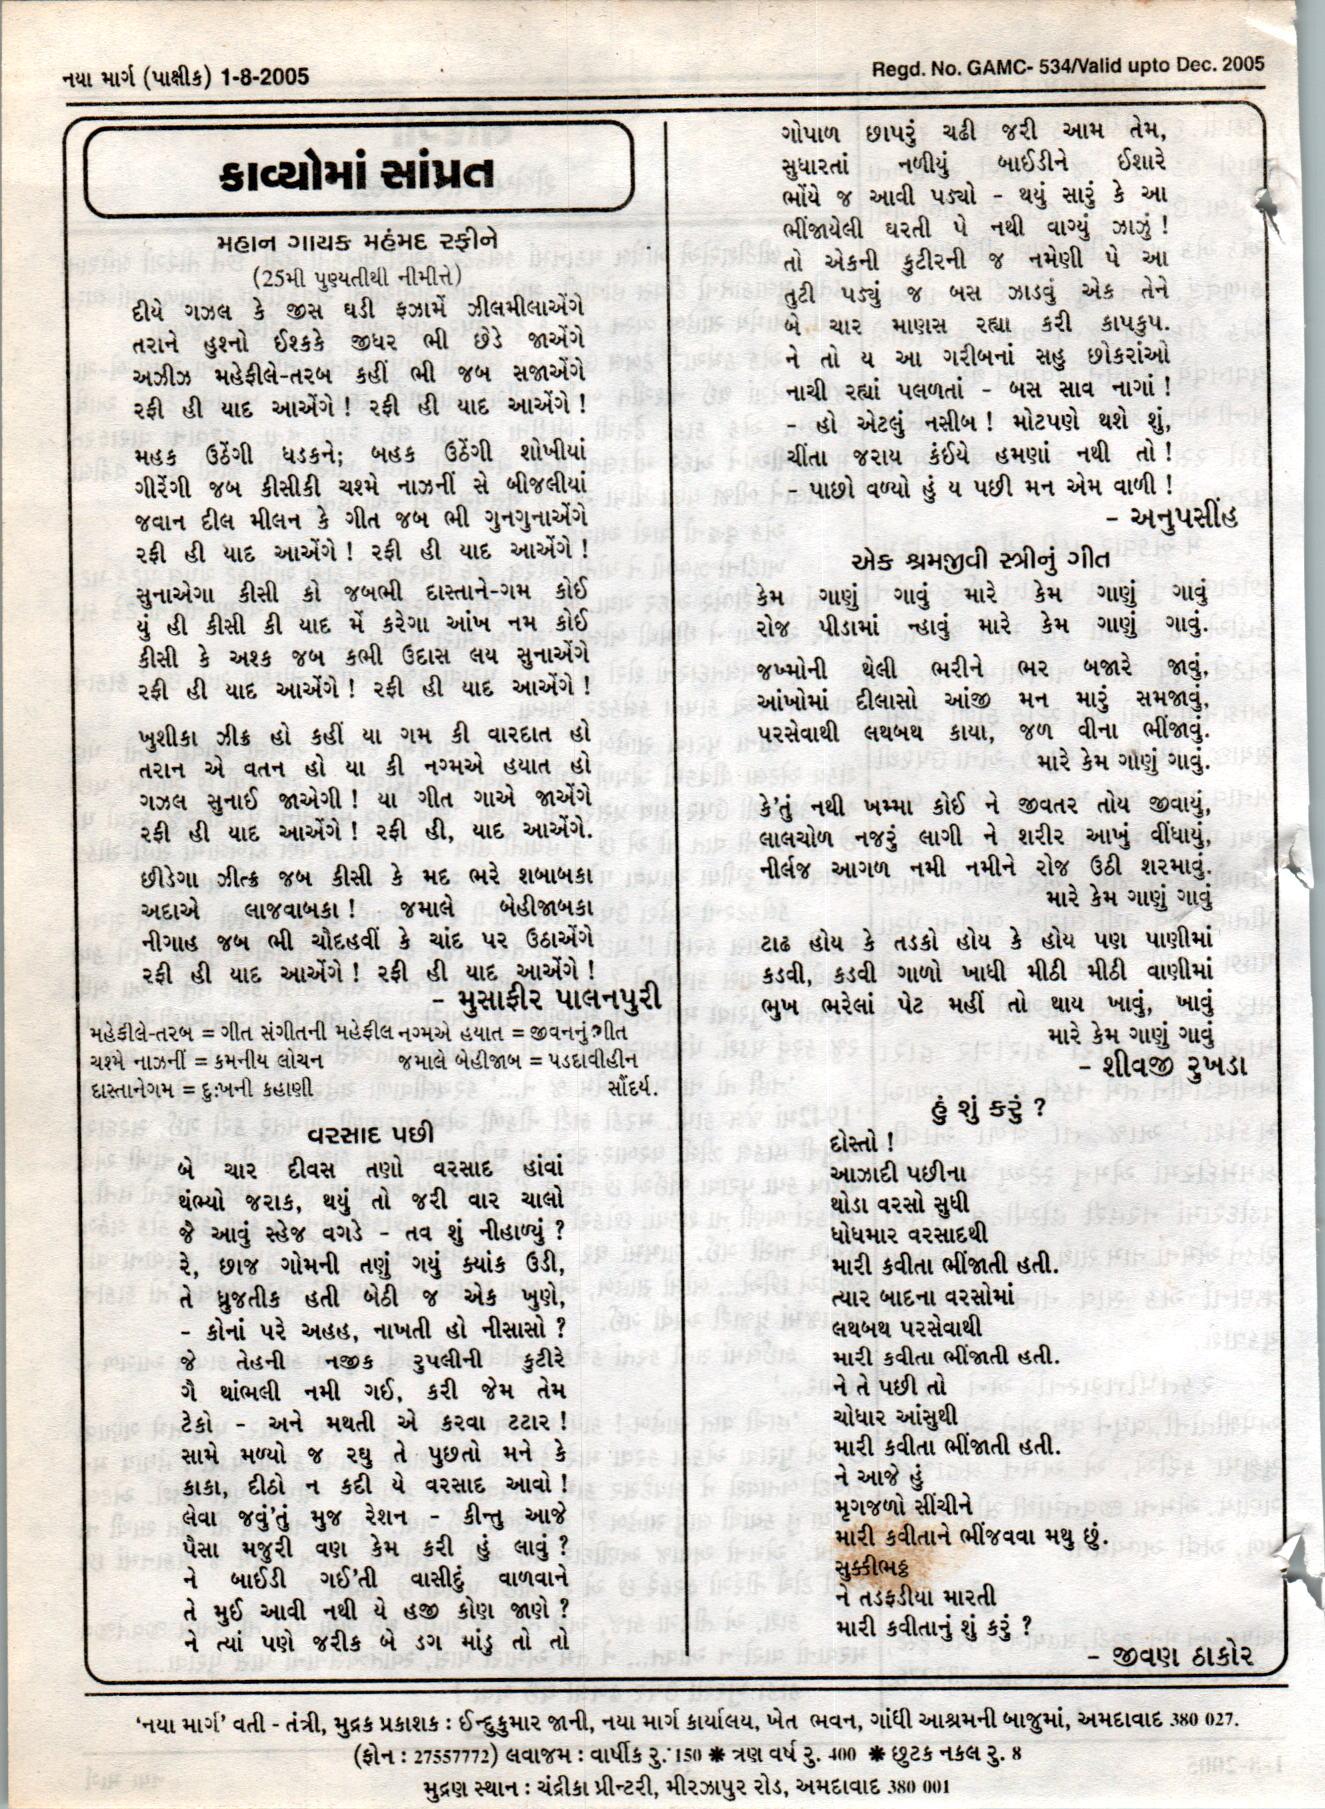 નયા માર્ગ (પાક્ષીક) 1-8-2005
Regd. No. GAMC- 534/Valid upto Dec. 2005
કાવ્યોમાં સાંપ્રત
મહાન ગાયક મહંમદ રફીને
(25મી પુણ્યતીથી નીમીત્તે)
દીયે ગઝલ કે જીસ ઘડી ફઝામેં ઝીલમીલાએંગે
તરાને હુશ્નો ઈશ્કકે જીધર ભી છેડે જાએંગે
અઝીઝ મહેફીલે-તરબ કહીં ભી જબ સજાએંગે
રફી હી યાદ આએંગે ! રફી હી યાદ આએંગે !
મહક ઉઠેંગી ધડકને; બહક ઉઠેંગી શોખીયાં
ગીરેંગી જબ કીસીકી ચશ્મે નાઝનીં સે બીજલીયાં
જવાન દીલ મીલન કે ગીત જબ ભી ગુનગુનાએંગે
રફી હી યાદ આએંગે ! રફી હી યાદ આએંગે !
સુનાએગા કીસી કો જબભી દાસ્તાને-ગમ કોઈ
યું હી કીસી કી યાદ મેં કરેગા આંખ નમ કોઈ
કીસી કે અશ્ક જબ કભી ઉદાસ લય સુનાએંગે
રફી હી યાદ આએંગે ! રફી હી યાદ આએંગે !
ખુશીકા ઝીક્ર હો કહીં યા ગમ કી વારદાત હો
તરાન એ વતન હો યા કી નગ્મએ હયાત હો
ગઝલ સુનાઈ જાએગી ! યા ગીત ગાએ જાએંગે
રફી હી યાદ આએંગે ! રફી હી, યાદ આએંગે.
છીડેગા ઝીત્ક્ર જબ કીસી કે મદ ભરે શબાબકા
અદાએ લાજવાબકા ! જમાલે બેહીજાબકા
નીગાહ જબ ભી ચૌદહવીં કે ચાંદ પર ઉઠાએંગે
રફી હી યાદ આએંગે ! રફી હી યાદ આએંગે !
- મુસાફીર પાલનપુરી
મહેફીલે-તરબ = ગીત સંગીતની મહેફીલ નગ્મએ હયાત = જીવનનું ગીત
ચશ્મે નાઝનીં = કમનીય લોચન જમાલે બેહીજાબ = પડદાવીહીન
દાસ્તાનેગમ = દુ:ખની કહાણી સૌંદર્ય.
વરસાદ પછી
બે ચાર દીવસ તણો વરસાદ હાંવાં
થંભ્યો જરાક, થયું તો જરી વાર ચાલો
જૈ આવું સ્હેજ વગડે - તવ શું નીહાળ્યું ?
રે, છાજ ગોમની તણું ગયું ક્યાંક ઉડી,
તે ધ્રુજતીક હતી બેઠી જ એક ખુણે,
- કોનાં પરે અહહ, નાખતી હો નીસાસો ?
જે તેહની નજીક રુપલીની કુટીરે
ગૈ થાંભલી નમી ગઈ, કરી જેમ તેમ
ટેકો - અને મથતી એ કરવા ટટાર !
સામે મળ્યો જ રઘુ તે પુછતો મને કે
કાકા, દીઠો ન કદી યે વરસાદ આવો !
લેવા જવું'તું મુજ રેશન - કીન્તુ આજે
પૈસા મજુરી વણ કેમ કરી હું લાવું ?
ને બાઈડી ગઈ'તી વાસીદું વાળવાને
તે મુઈ આવી નથી યે હજી કોણ જાણે ?
ને ત્યાં પણે જરીક બે ડગ માંડુ તો તો
ગોપાળ છાપરું ચઢી જરી આમ તેમ,
સુધારતાં નળીયું બાઈડીને ઈશારે
ભોંયે જ આવી પડ્યો - થયું સારું કે આ
ભીંજાયેલી ધરતી પે નથી વાગ્યું ઝાઝું !
તો એકની કુટીરની જ નમેણી પે આ
તુટી પડ્યું જ બસ ઝાડવું એક તેને
બે ચાર માણસ રહ્યા કરી કાપકુપ.
ને તો ય આ ગરીબનાં સહુ છોકરાંઓ
નાચી રહ્યાં પલળતાં - બસ સાવ નાગાં !
- હો એટલું નસીબ ! મોટપણે થશે શું,
ચીંતા જરાય કંઈયે હમણાં નથી તો !
- પાછો વળ્યો હું ય પછી મન એમ વાળી !
- અનુપસીંહ
એક શ્રમજીવી સ્ત્રીનું ગીત
કેમ ગાણું ગાવું મારે કેમ ગાણું ગાવું
રોજ પીડામાં ન્હાવું મારે કેમ ગાણું ગાવું.
જખ્મોની થેલી ભરીને ભર બજારે જાવું,
આંખોમાં દીલાસો આંજી મન મારું સમજાવું,
પરસેવાથી લથબથ કાયા, જળ વીના ભીંજાવું.
મારે કેમ ગાણું ગાવું.
કે'તું નથી ખમ્મા કોઈ ને જીવતર તોય જીવાયું,
લાલચોળ નજરું લાગી ને શરીર આખું વીંધાયું,
નીર્લજ આગળ નમી નમીને રોજ ઉઠી શરમાવું.
મારે કેમ ગાણું ગાવું
ટાઢ હોય કે તડકો હોય કે હોય પણ પાણીમાં
કડવી, કડવી ગાળો ખાધી મીઠી મીઠી વાણીમાં
ભુખ ભરેલાં પેટ મહીં તો થાય ખાવું, ખાવું
મારે કેમ ગાણું ગાવું
- શીવજી રુખડા
હું શું કરું ?
દોસ્તો !
આઝાદી પછીના
થોડા વરસો સુધી
ધોધમાર વરસાદથી
મારી કવીતા ભીંજાતી હતી.
ત્યાર બાદના વરસોમાં
લથબથ પરસેવાથી
મારી કવીતા ભીંજાતી હતી.
ને તે પછી તો
ચોધાર આંસુથી
મારી કવીતા ભીંજાતી હતી.
ને આજે હું
મૃગજળો સીંચીને
મારી કવીતાને ભીંજવવા મથુ છું.
સુક્કીભઠ્ઠ
ને તડફડીયા મારતી
મારી કવીતાનું શું કરું ?
- જીવણ ઠાકોર
'નયા માર્ગ' વતી - તંત્રી, મુદ્રક પ્રકાશક : ઈન્દુકુમાર જાની, નયા માર્ગ કાર્યાલય, ખેત ભવન, ગાંધી આશ્રમની બાજુમાં, અમદાવાદ 380 027.
(ફોન : 27557772) લવાજમ : વાર્ષીક રુ. 150 ✱ ત્રણ વર્ષ રુ. 400 ✱ છુટક નકલ રુ. 8
મુદ્રણ સ્થાન : ચંદ્રીકા પ્રીન્ટરી, મીરઝાપુર રોડ, અમદાવાદ 380 001